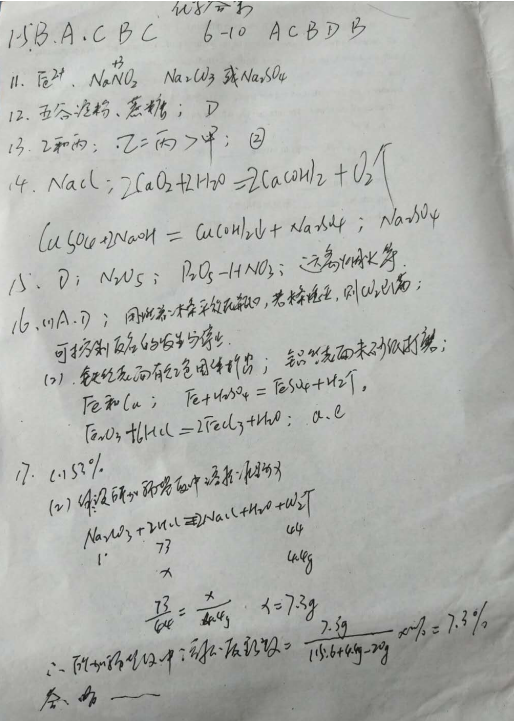 化学答案
1-5.B.A.C B C 6-10 A C B D B
11. Fe²⁺、NaN⁺³O₂ Na₂CO₃ 或 Na₂SO₄
12. 淀粉、蔗糖; D
13. 乙和丙; 乙=丙>甲; ②
14. NaCl; 2CaO₂+2H₂O=2Ca(OH)₂+O₂↑
CuSO₄+2NaOH=Cu(OH)₂↓+Na₂SO₄; Na₂SO₄
15. D; N₂O₅; P₂O₅-HNO₃;
16.(1)A.D; 木条平放在瓶口,若木条熄灭,则CO₂已满;
可控制反应的发生与停止.
(2). 表面有红色固体析出; 铝丝表面未打磨;
Fe和Cu; Fe+H₂SO₄=FeSO₄+H₂↑.
Fe₂O₃+6HCl=2FeCl₃+H₂O; a.c
17. (1)53%
(2)设所加稀盐酸中溶质质量为x
Na₂CO₃+2HCl=2NaCl+H₂O+CO₂↑
73 44
x 4.4g
73/44=x/4.4g x=7.3g
∴所加稀盐酸中溶质质量分数=7.3g/(115.6+4.4g-20g)×%=7.3%
答:略